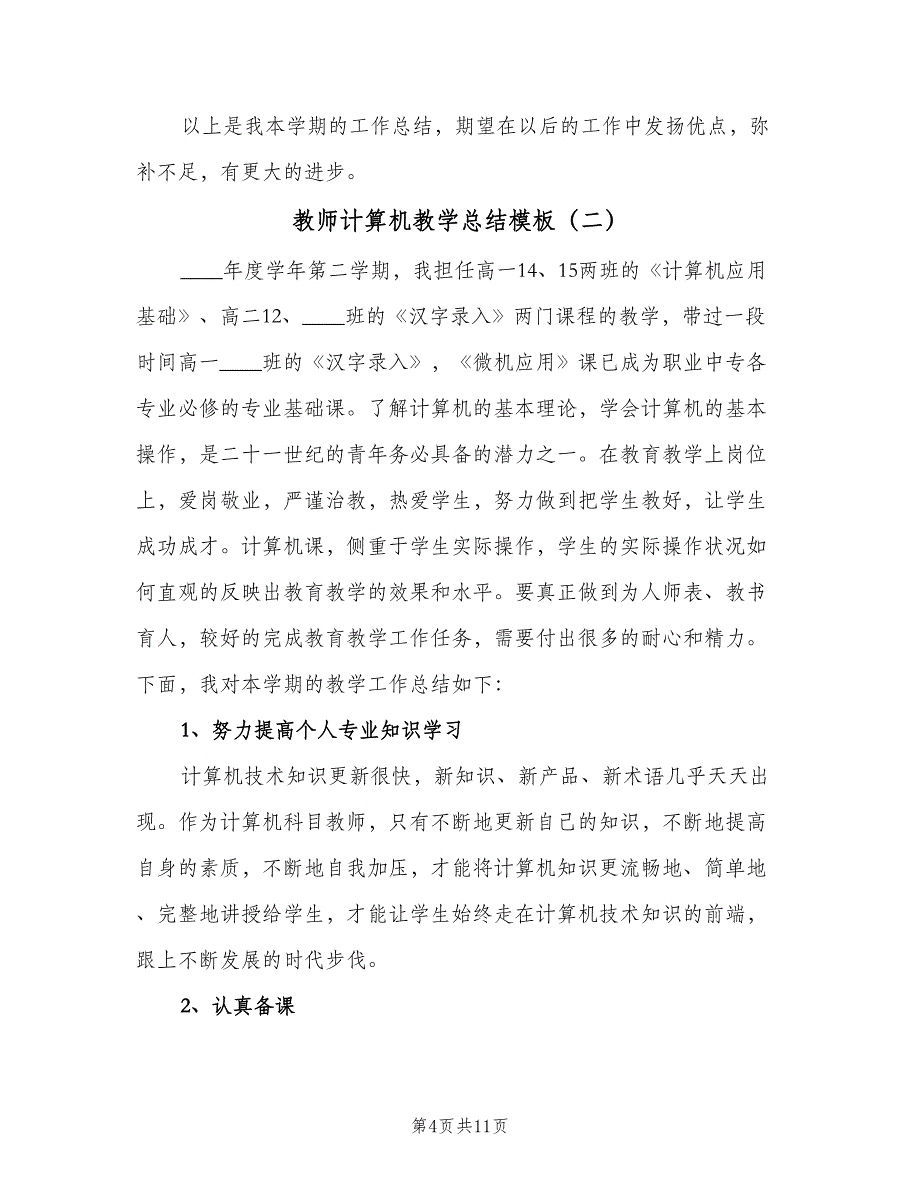 以上是我本学期的工作总结，期望在以后的工作中发扬优点，弥
补不足，有更大的进步。
教师计算机教学总结模板（二）
____年度学年第二学期，我担任高一14、15两班的《计算机应用
基础》、高二12、____班的《汉字录入》两门课程的教学，带过一段
时间高一____班的《汉字录入》，《微机应用》课已成为职业中专各
专业必修的专业基础课。了解计算机的基本理论，学会计算机的基本
操作，是二十一世纪的青年务必具备的潜力之一。在教育教学上岗位
上，爱岗敬业，严谨治教，热爱学生，努力做到把学生教好，让学生
成功成才。计算机课，侧重于学生实际操作，学生的实际操作状况如
何直观的反映出教育教学的效果和水平。要真正做到为人师表、教书
育人，较好的完成教育教学工作任务，需要付出很多的耐心和精力。
下面，我对本学期的教学工作总结如下：
1、努力提高个人专业知识学习
计算机技术知识更新很快，新知识、新产品、新术语几乎天天出
现。作为计算机科目教师，只有不断地更新自己的知识，不断地提高
自身的素质，不断地自我加压，才能将计算机知识更流畅地、简单地
、完整地讲授给学生，才能让学生始终走在计算机技术知识的前端，
跟上不断发展的时代步伐。
2、认真备课
第4页共11页